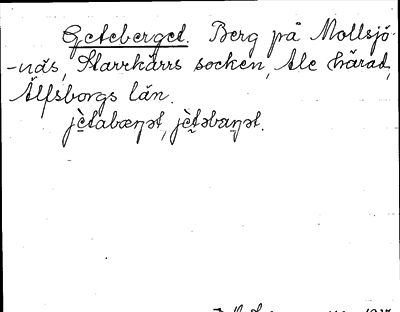 Geteberget. Berg på Mollsjö-
-näs, Starrkärrs socken, Ale härad,
Älfsborgs län.
jètabæŋət, jètəbaŋət.